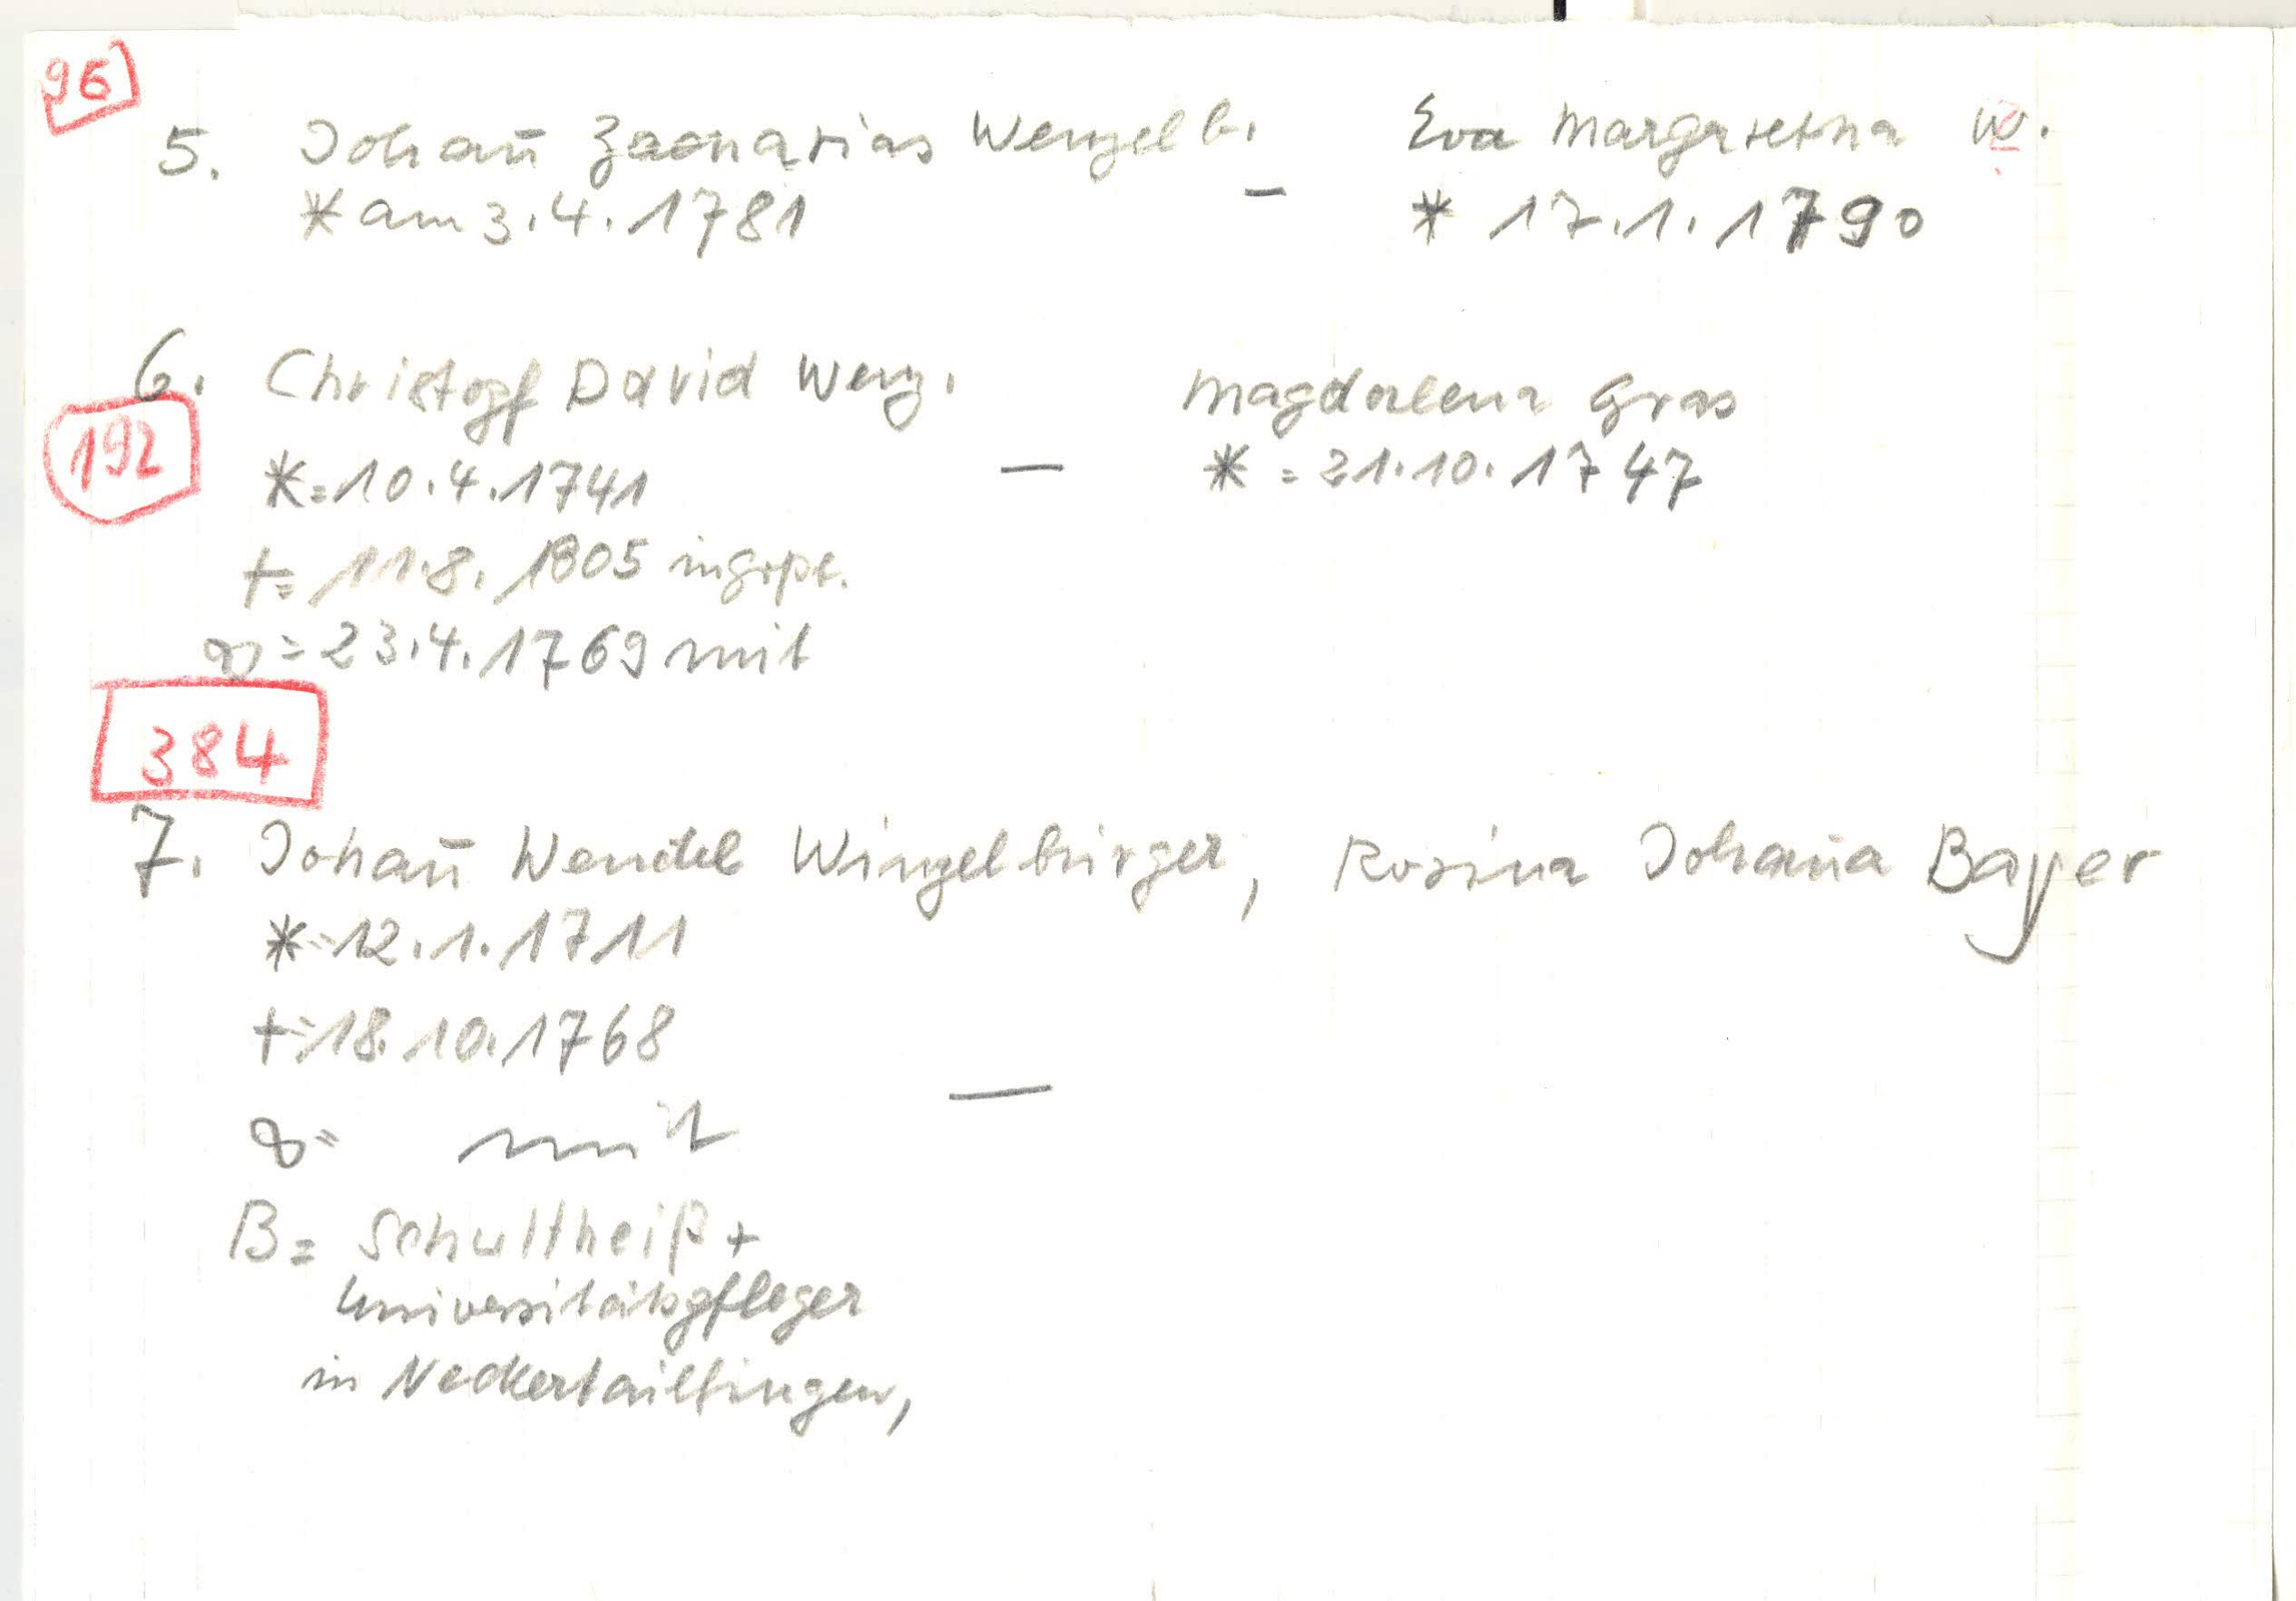 96
5. Johan̄ Zacharias Wenzelb. Eva Margaretha W.
* am 3.4.1781 — * 17.1.1790
6. Christopf David Wenz. Magdalena Gras
192
*=10.4.1741 — *=21.10.1747
†=11.8.1805 in Grpt.
∞=23.4.1769 mit
384
7. Johan̄ Wendel Winzelbürger, Rosina Johan̄a Bayer
*=12.1.1711
†=18.10.1768
∞= mit —
B= Schultheiß +
Universitätspfleger
in Neckertailfingen,